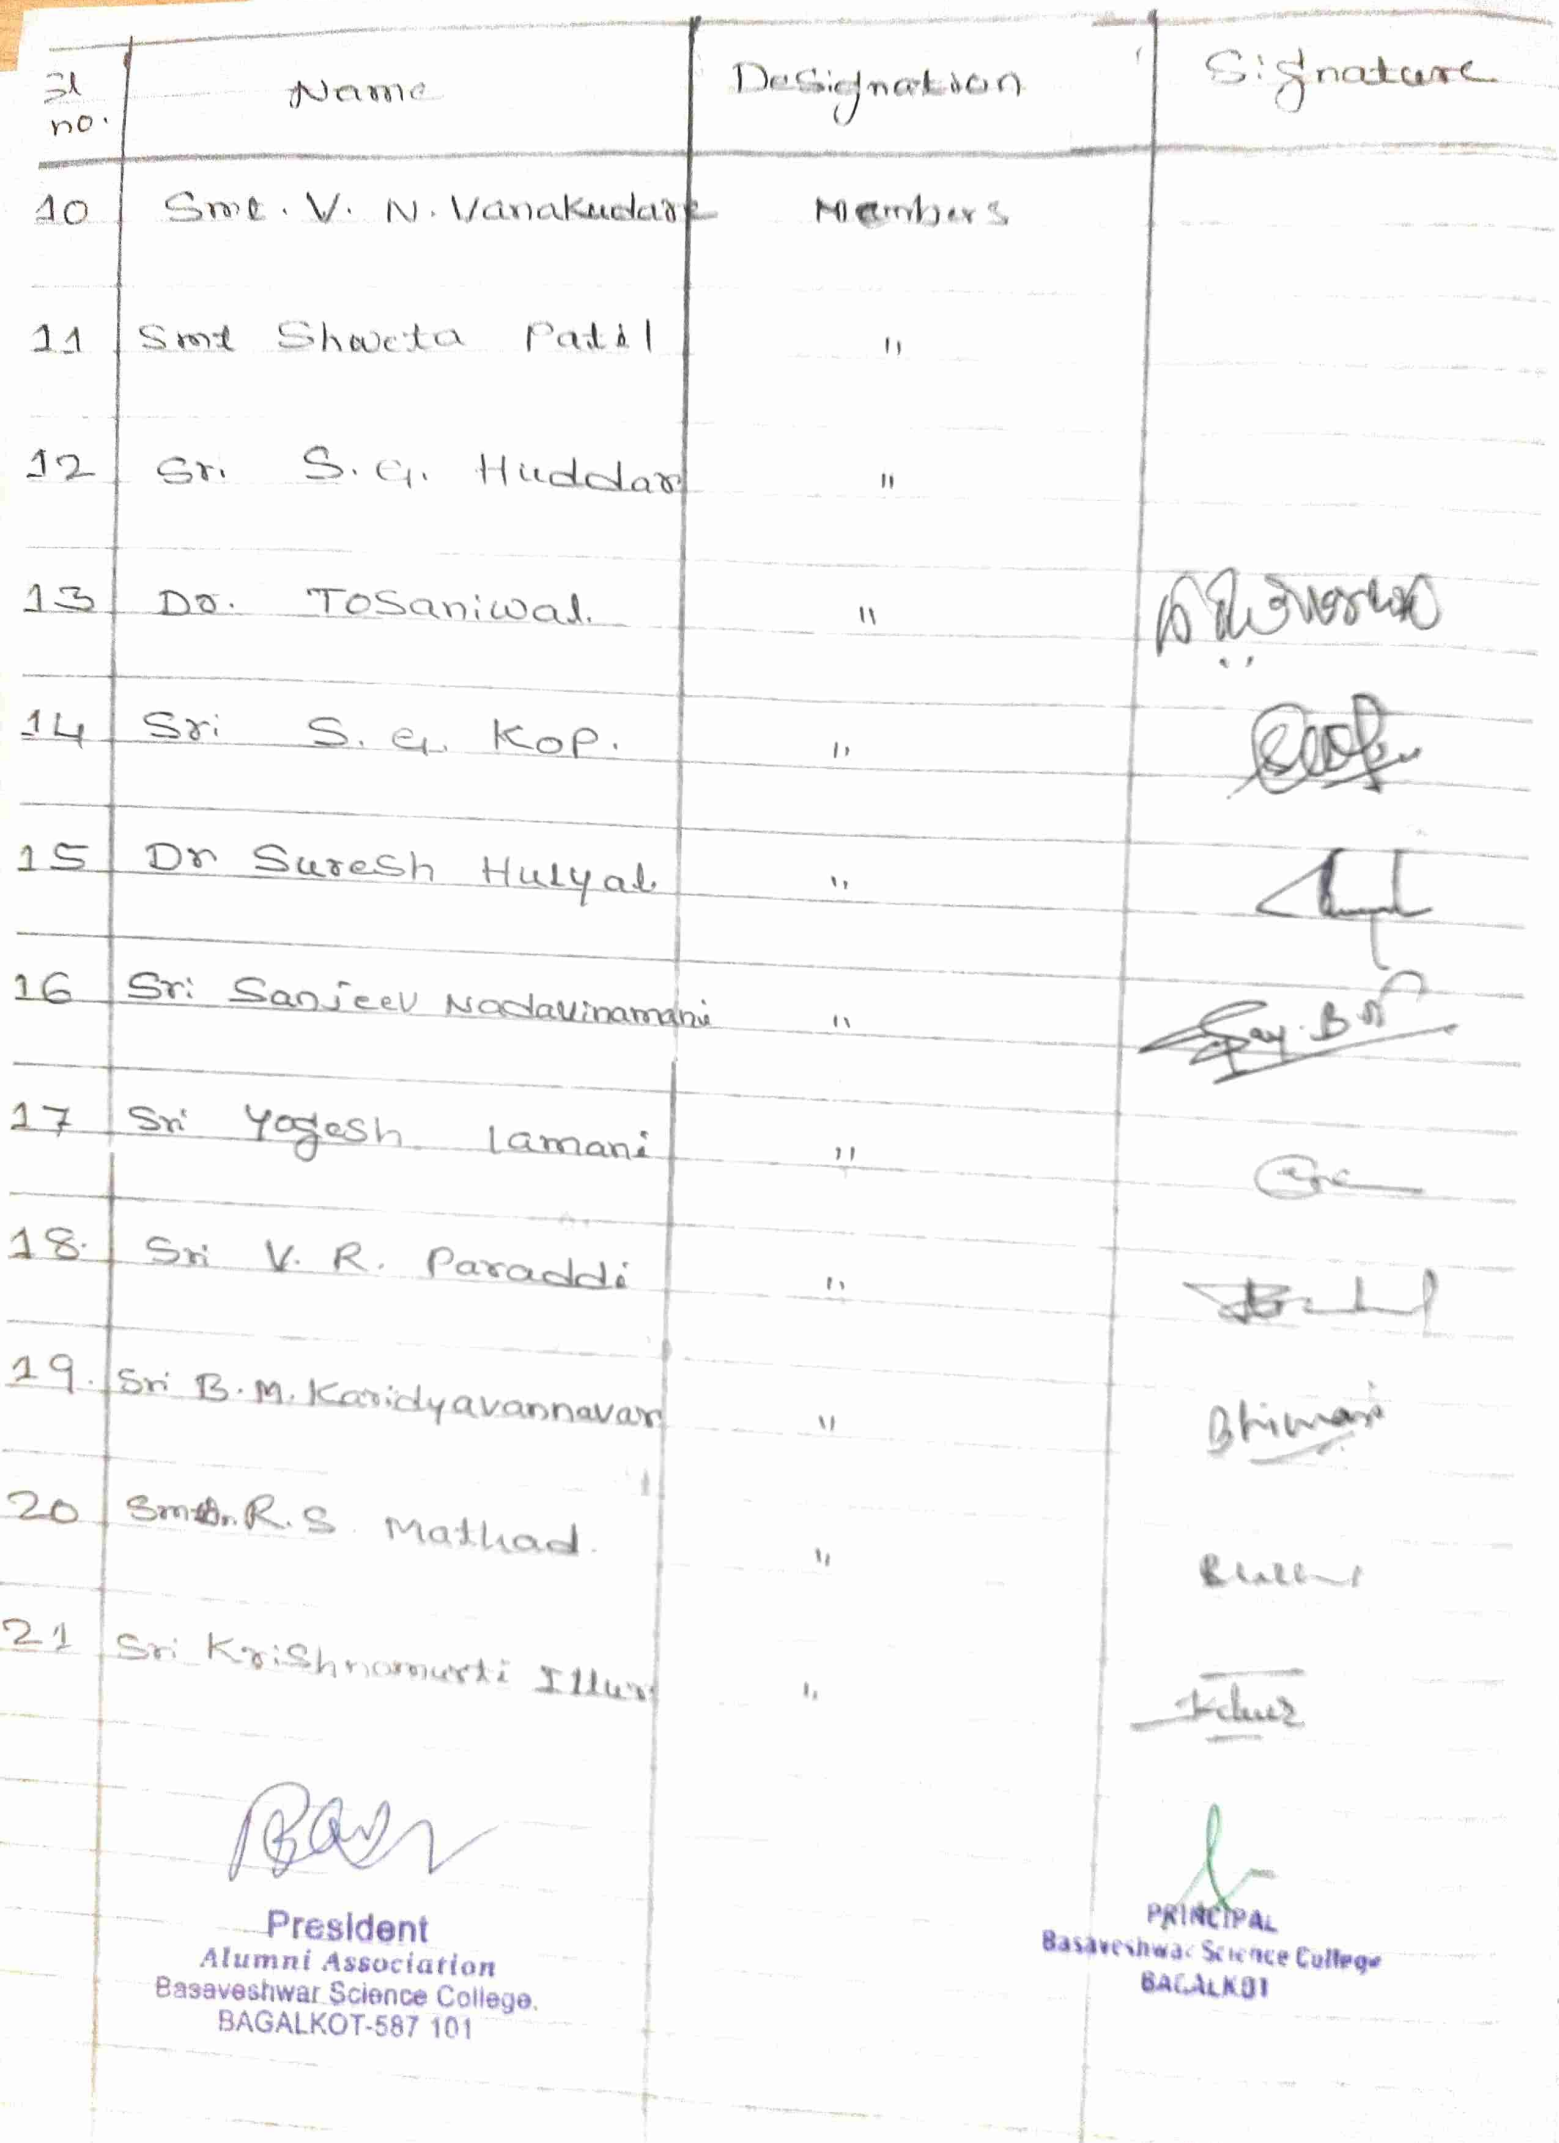 Sl no. Name Designation Signature
10 Smt. V. N. Vanakudari Members
11 Smt Shweta Patil "
12 Sri. S. G. Huddar "
13 Dr. Tosaniwal. "
14 Sri S. G. Kop. "
15 Dr Suresh Hulyal. "
16 Sri Sanjeev Nadavinamani "
17 Sri Yogesh Lamani "
18. Sri V. R. Paraddi "
19. Sri B. M. Karidyavannavar " Bhimani
20 R. S. Mathad. "
21 Sri Krishnamurti Illur "
President
Alumni Association
Basaveshwar Science College.
BAGALKOT-587 101
PRINCIPAL
Basaveshwar Science College
BAGALKOT